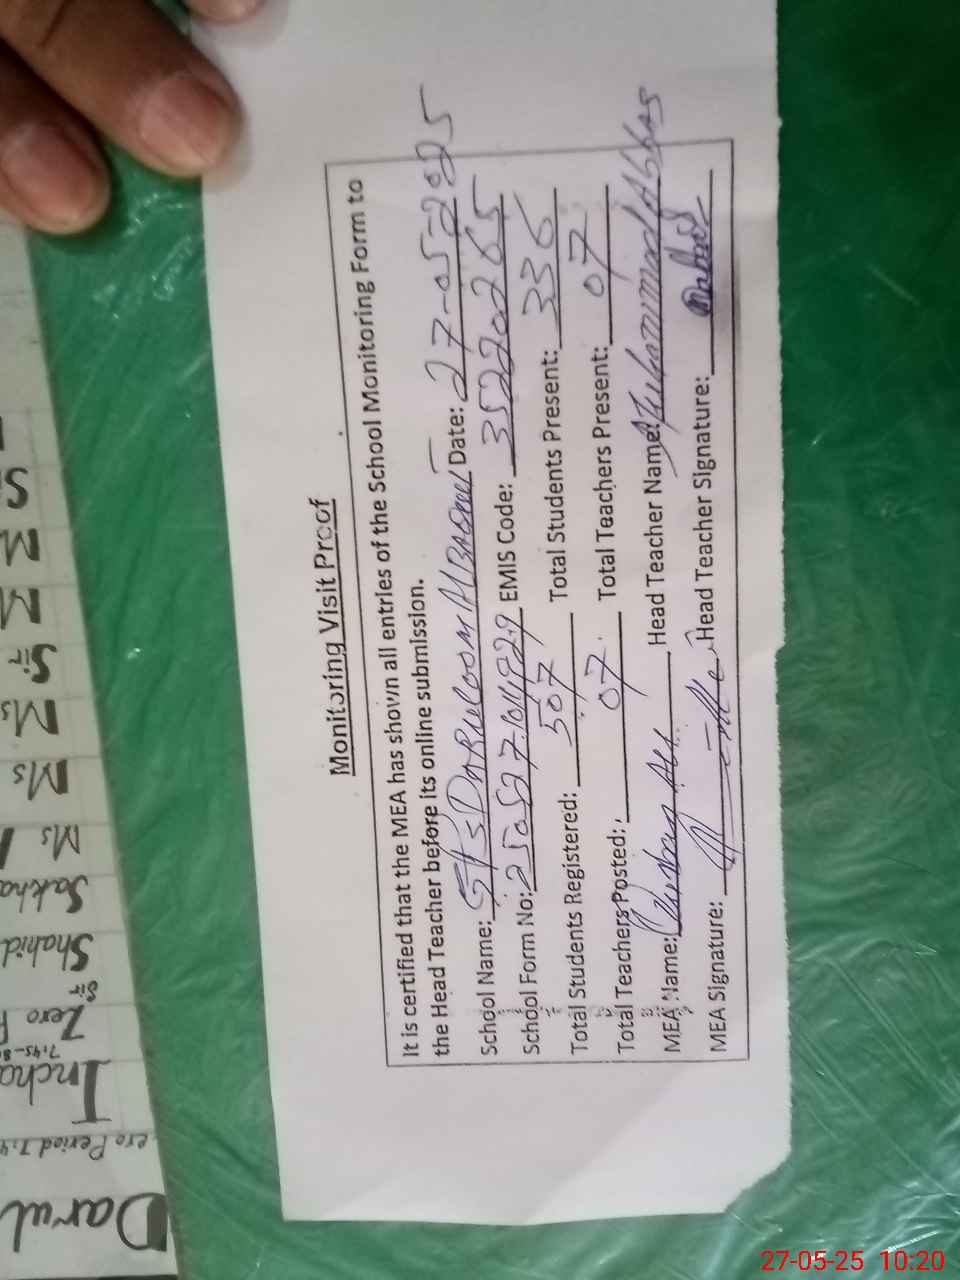 Monitoring Visit Proof
It is certified that the MEA has shown all entries of the School Monitoring Form to
the Head Teacher before its online submission.
School Name: Date: 27-05-2025
School Form No: EMIS Code: 35220265
Total Students Registered: 507 Total Students Present: 336
Total Teachers Posted: 07 Total Teachers Present: 07
MEA Name: Head Teacher Name: Muhammad Abbas
MEA Signature: Head Teacher Signature:
Darul
Zero Period
Incha
7:45-8
Zero
Sir
Shahid
Sakha
Ms
Ms
Ms
Sir
M
M
27-05-25 10:20